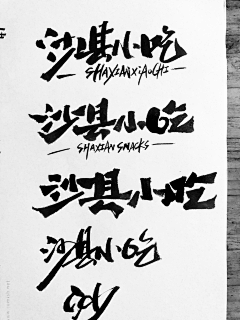 沙县小吃
SHAXIANXIAOCHI
沙县小吃
SHAXIAN SNACKS
沙县小吃
沙县小吃